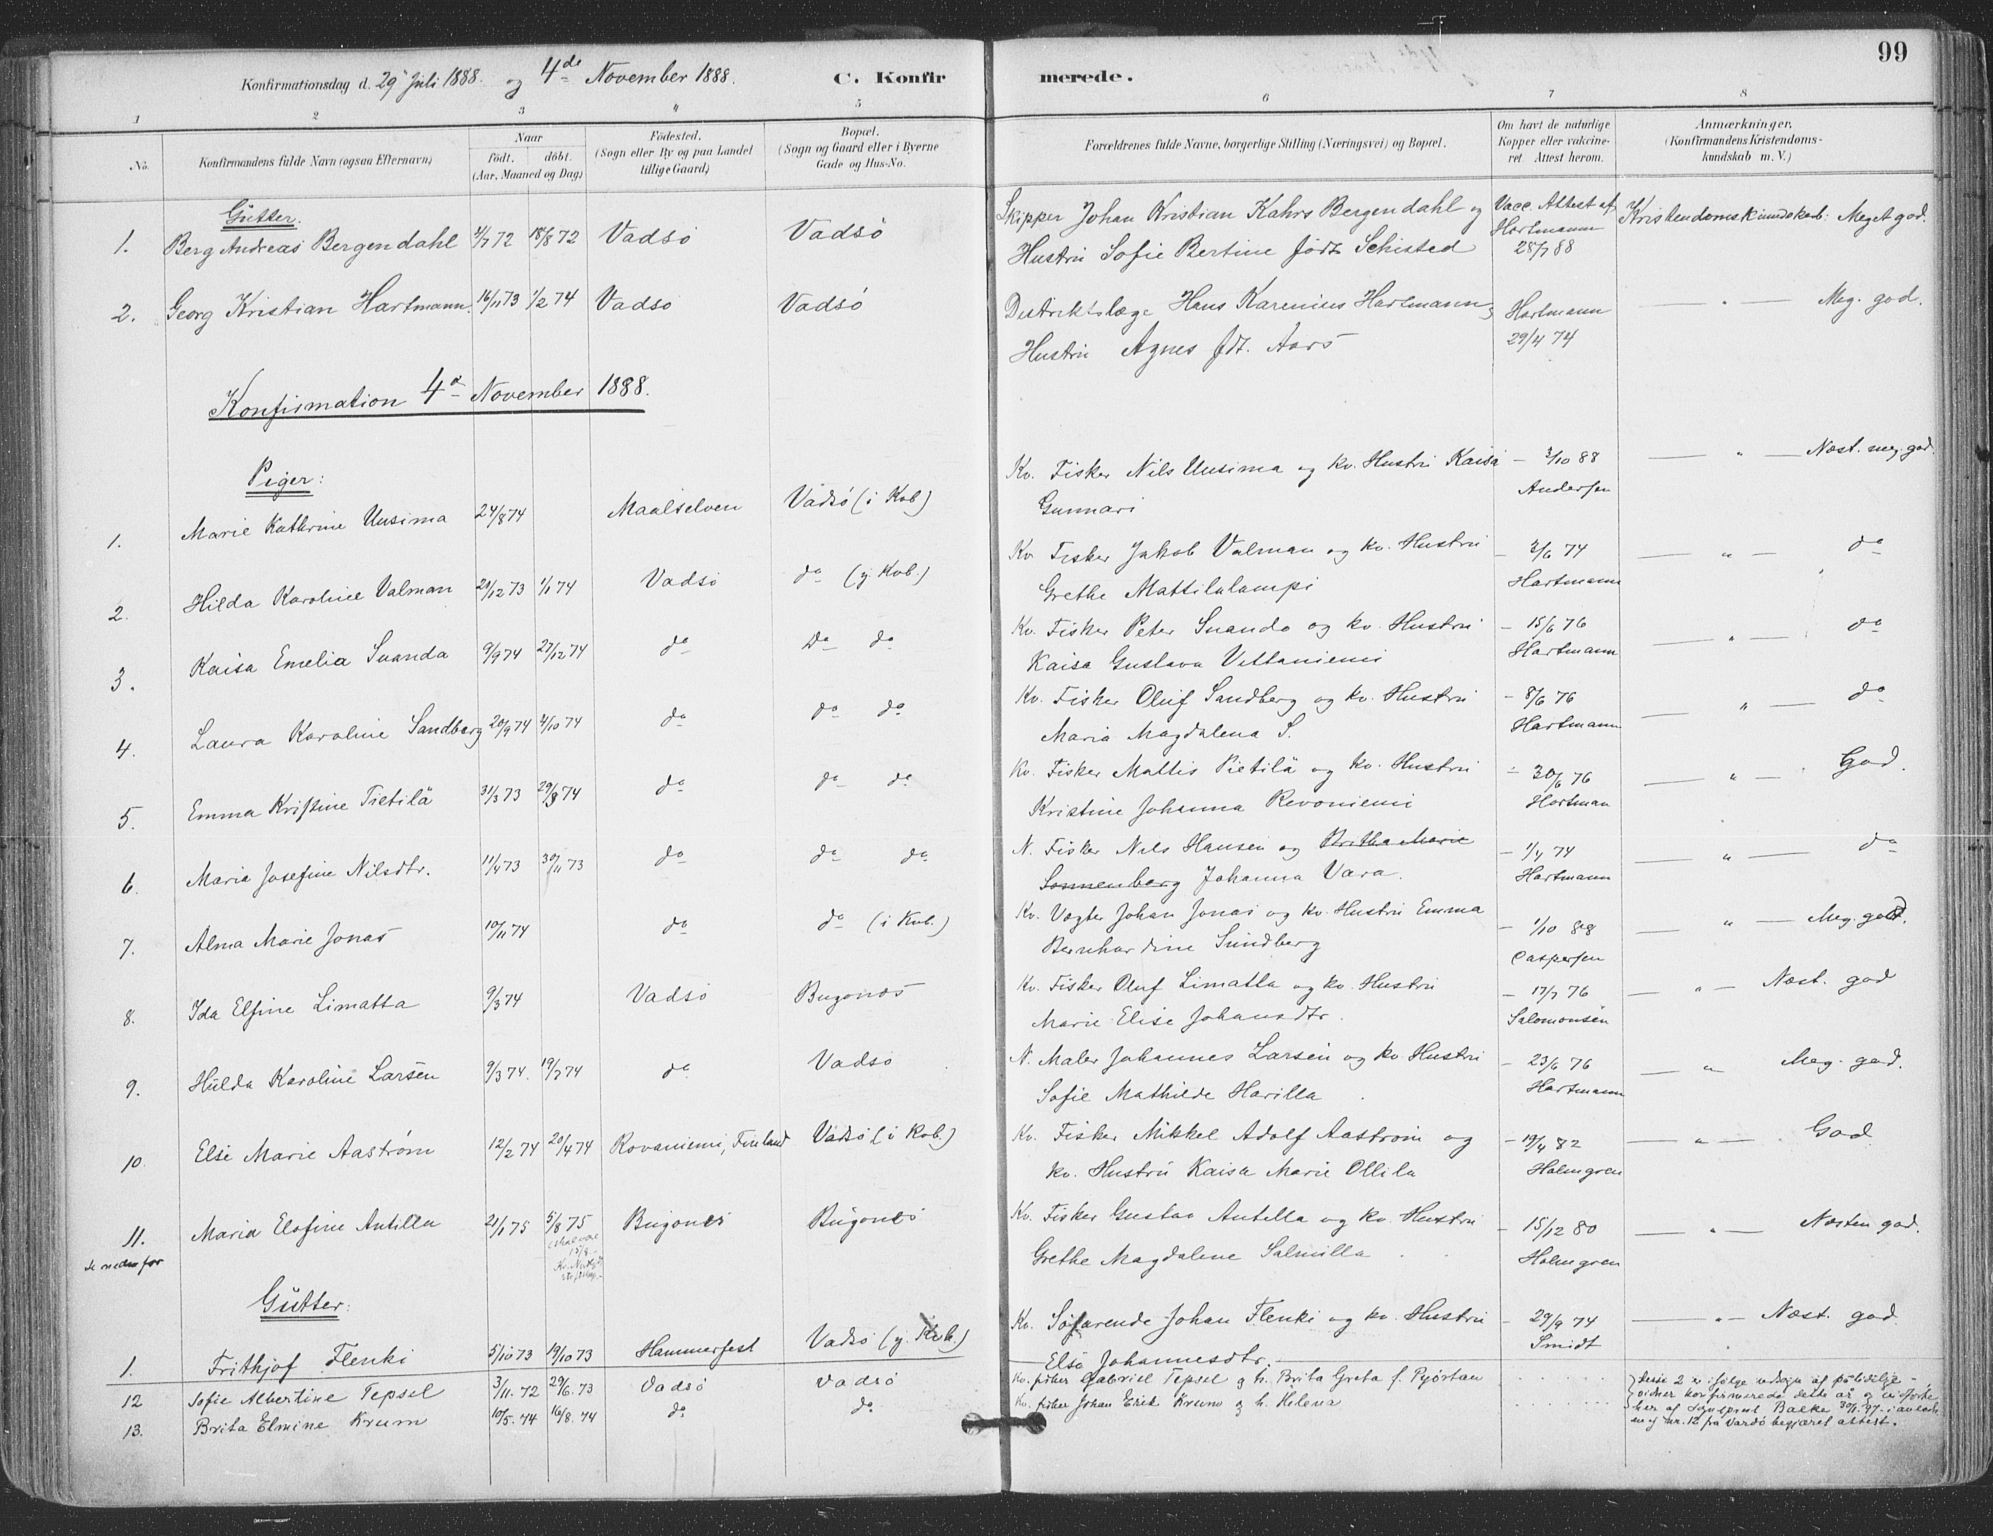 99
Konfirmationsdag d. 29 Juli 1888. og 4de November 1888. C. Konfir merede.
1 2 3 " 5 6 7 8
No. Konfirmandens fulde Navn (ogsaa Efternavn) Naar født. døbt. (Aar, Maaned og Dag) Fødested. (Sogn eller By og paa Landet tillige Gaard) Bopæl. (Sogn og Gaard eller i Byerne Gade og Hus-No. Forældrenes fulde Navne, borgerlige Stilling (Næringsvei) og Bopæl. Om havt de naturlige Kopper eller vakcineret. Attest herom. Anmærkninger. (Konfirmandens Kristendomskundskab m. V.)
Gutter.
1. Berg Andreas Bergendahl 4/7 72 18/8 72 Vadsö Vadsö Skipper Johan Kristian Kahrs Bergendahl og Vacc. Attest af Kristendomskundskab: Meget god.
Hustru Sofie Bertine født Schisted Hartmann 28/7 88
2. Georg Kristian Hartmann. 16/11 73 1/2 74 Vadsö Vadsö Distriktslæge Hans Karenius Hartmann og Hartmann — " — Meg. god.
Hustru Agnes fdt. Aars 29/4 74
Konfirmation 4de November 1888.
Piger:
1. Marie Kathrine Uusima 24/8 74 Maalselven Vadsö (i Kob.) Kv. Fisker Nils Uusima og kv. Hustru Kaisa — 3/10 88 — " — Næst. meg. god.
Gunnari Andersen
2. Hilda Karoline Valman 29/12 73 1/1 74 Vadsö do (y. Kob.) Kv. Fisker Jakob Valman og kv. Hustru — 2/6 74 — " — do
Grethe Mattilalampi Hartmann
3. Kaisa Emelia Suanda 9/9 74 27/12 74 do Do do Kv. Fisker Peter Suando og kv. Hustru — 15/6 76 — " — do
Kaisa Gustava Vittaniemi Hartmann
4. Laura Karoline Sandberg 20/9 74 4/10 74 do do do Kv. Fisker Oluf Sandberg og kv. Hustru — 8/6 76 — " — do
Maria Magdalena S. Hartmann
5. Emma Kristine Pietilä 31/3 73 29/3 74 do do do Kv. Fisker Mattis Pietilä og kv. Hustru — 30/6 76 — " — God.
Kristine Johanna Revoniemi Hartman
6. Maria Josefine Nilsdtr. 11/4 73 30/11 73 do do do N. Fisker Nils Hansen og Britha Marie — 1/4 74 — " — do
Sonnenberg Johanna Vara. Hartmann
7. Alma Marie Jonas 10/11 74 do do (i Kob.) Kv. Vægter Johan Jonas og kv. Hustru Emma — 1/10 88 — " — Meg. god.
Bernhardine Sundberg Caspersen
8. Ida Elfine Limatta 9/3 74 Vadsö Bugönes Kv. Fisker Oluf Limatta og kv. Hustru — 17/7 76 — " — Næst. god
Marie Elise Johansdtr. Salomonsen
9. Hulda Karoline Larsen 9/3 74. 19/7 74 do Vadsö N. Maler Johannes Larsen og kv. Hustru — 23/6 76 — " — Meg. god.
Sofie Mathilde Harilla Hartmann
10. Else Marie Aaström 12/2 74 20/4 74 Rovaniemi, Finland Vadsö (i Kob.) Kv. Fisker Mikkel Adolf Aaström og — 19/4 82 — " — God
kv. Hustru Kaisa Marie Ollila Holmgren
11. Maria Elofine Antilla 21/1 75 5/8 75 Bugönes Bugönes Kv. Fisker Gustav Antella og kv. Hustru — 15/12 80 — " — Næsten god.
se nedenfor Grethe Magdalene Salmilla Holmgren
Gutter:
1. Frithjof Flenki 5/10 73 19/10 73 Hammerfest Vadsö (y. Kob.) Kv. Søfarende Johan Flenki og kv. Hustru — 29/9 74 " — Næst. god.
Else Johannesdtr. Smidt
12 Sofie Albertine Tepsel 3/11. 72 29/6. 73 Vadsö Vadsö Kv. fisker Gabriel Tepsel og h. Brita Greta f. Pyörtan
13. Brita Elmine Krum 10/5. 74 16/8. 74 do do Kv. fisker Johan Erik Krum og h. Helena
Disse 2 er ifølge udsagn af pålidelige
vidner konfirmerede dette år og indførte
her af Balke 30/1. 97.
nr. 12 på Vardö begjæret attest.